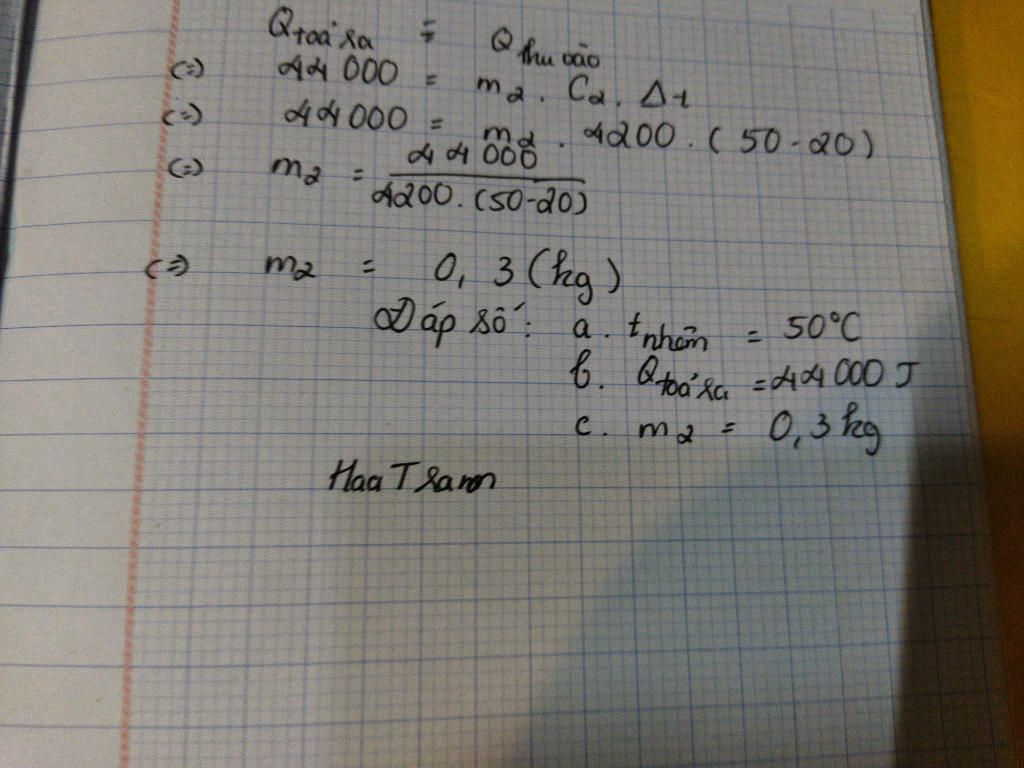 Qtoả ra = Qthu vào
(=) 44 000 = m2 . C2 . Δt
(=) 44 000 = m2 . 4200 . (50 - 20)
(=) m2 = 44 000 / 4200 . (50 - 20)
(=) m2 = 0,3 (kg)
Đáp số: a. tnhôm = 50°C
b. Qtoả ra = 44 000 J
c. m2 = 0,3 kg